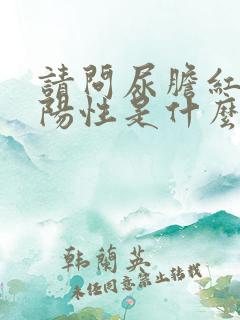 請問尿膽紅
陽性是什麼
韩蘭英
未经同意禁止转载